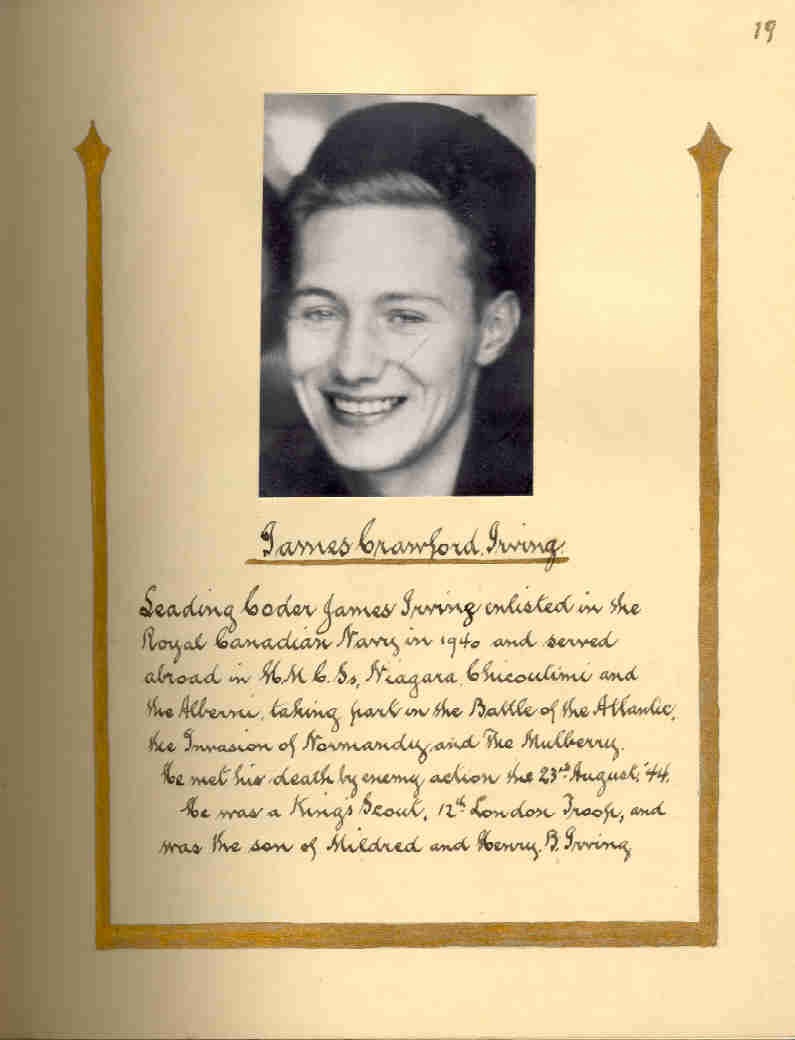 19
James Crawford Irving.
Leading Coder James Irving enlisted in the
Royal Canadian Navy in 1940 and served
abroad in H.M.C.Ss, Niagara, Chicoutimi and
the Alberni, taking part in the Battle of the Atlantic,
the Invasion of Normandy and The Mulberry.
He met his death by enemy action the 23rd August, '44.
He was a King's Scout, 12th London Troop, and
was the son of Mildred and Henry. B. Irving